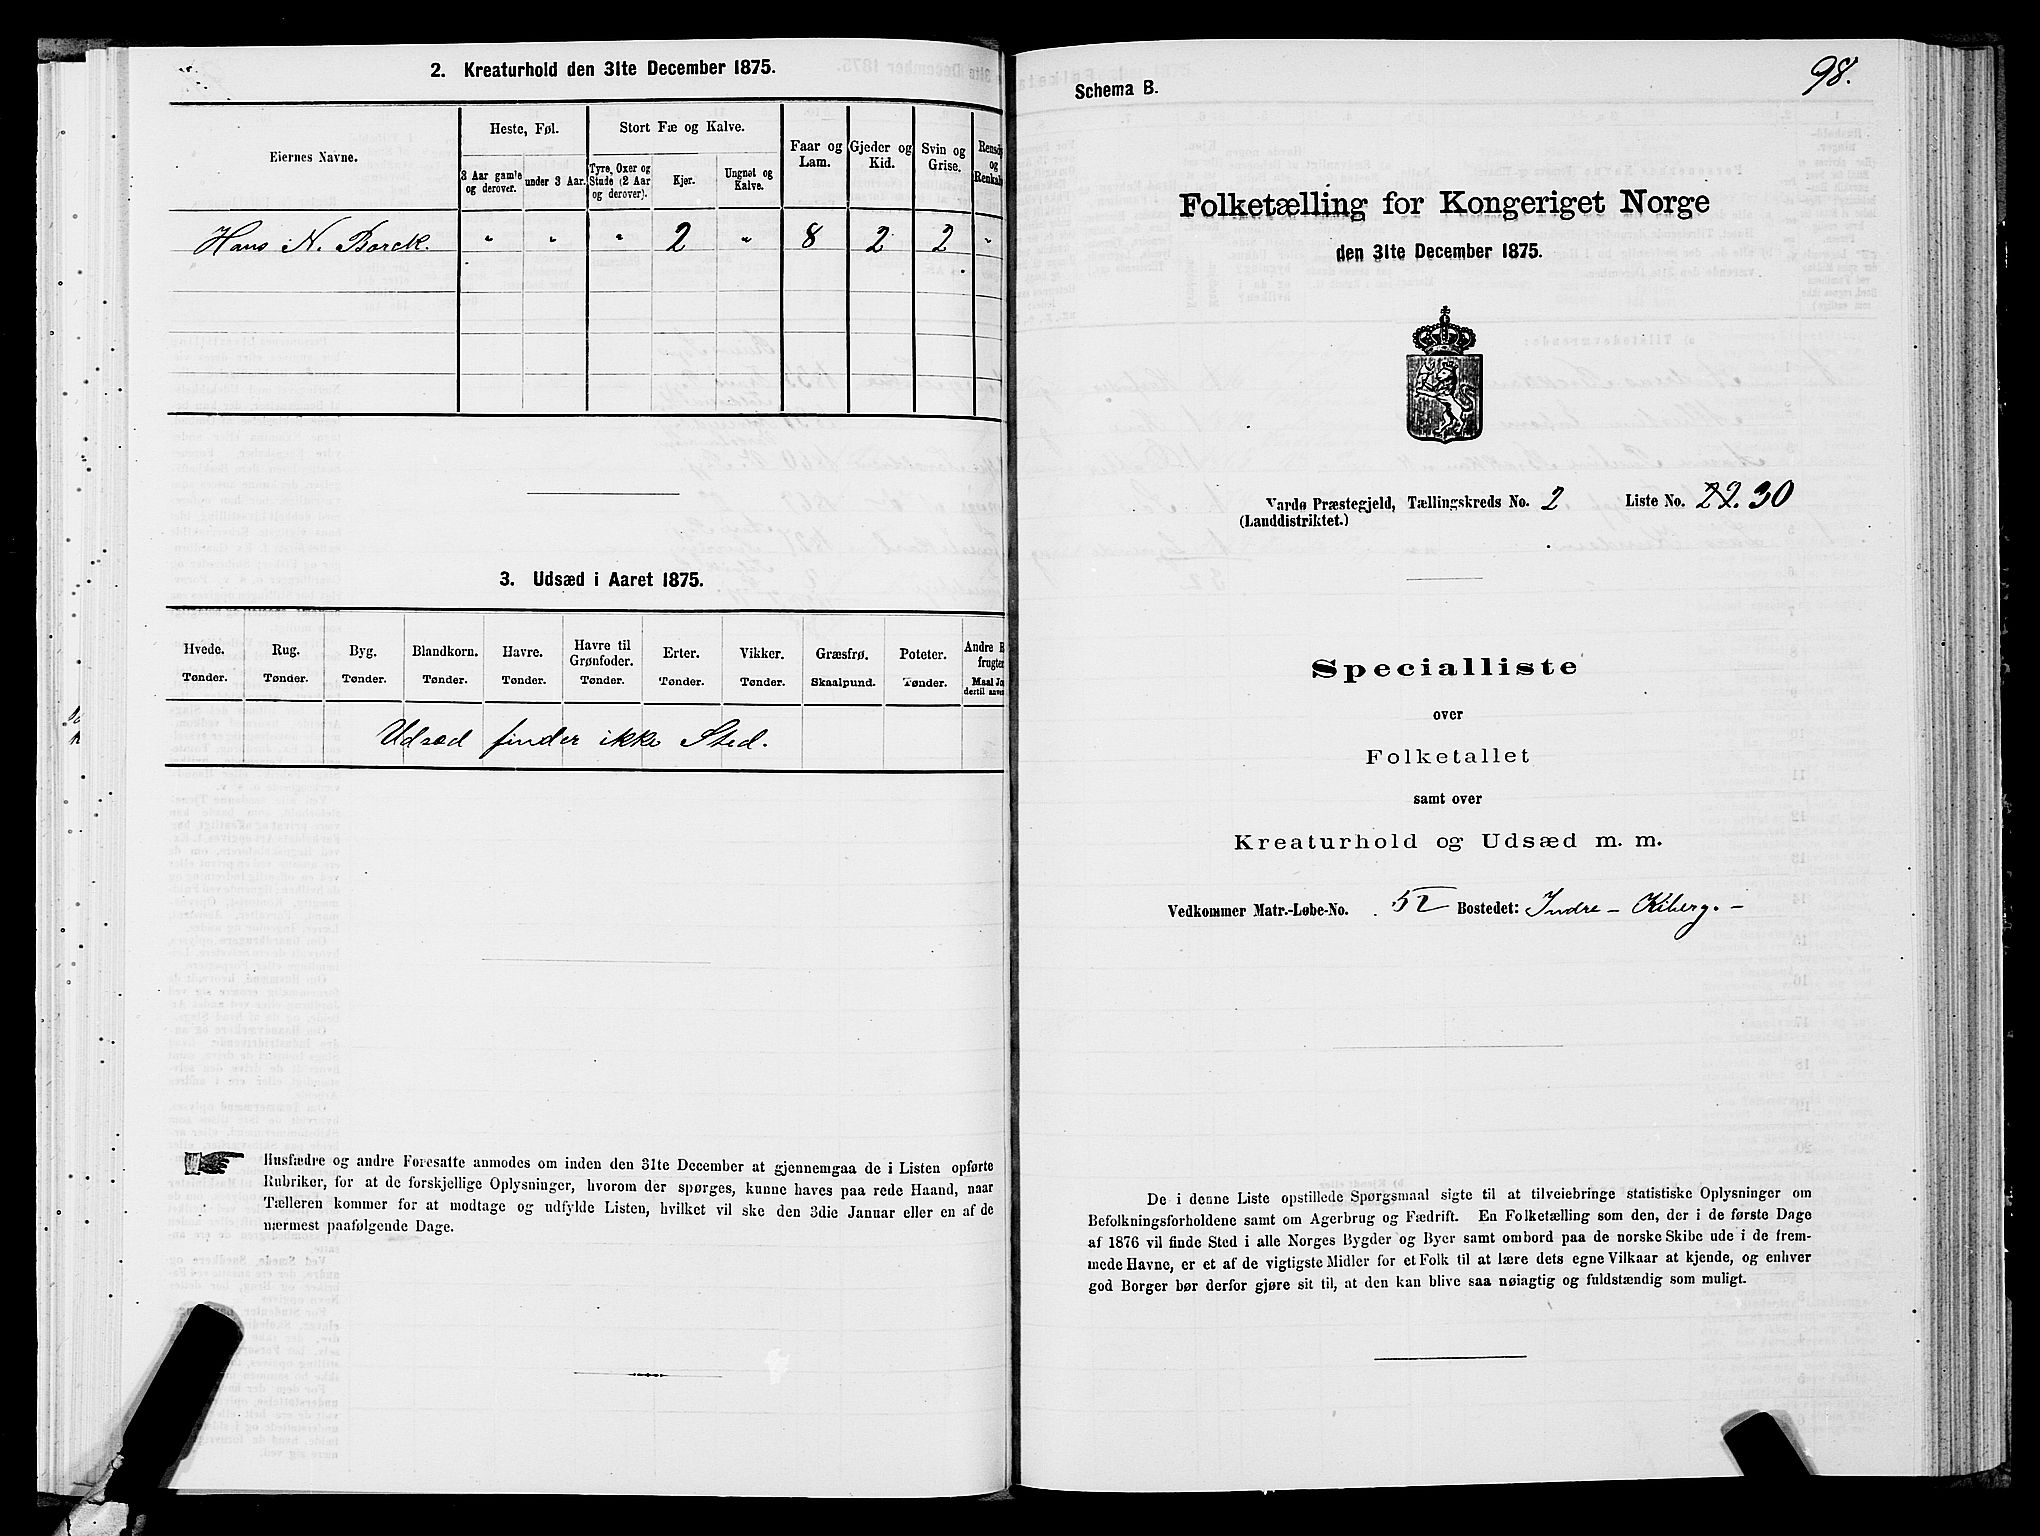 2. Kreaturhold den 31te December 1875.
Eiernes Navne.
Heste, Føl.
3 Aar gamle og derover.
under 3 Aar.
Stort Fæ og Kalve.
Tyre, Oxer og Stude (2 Aar og derover).
Kjør.
Ungnøt og Kalve.
Faar og Lam.
Gjeder og Kid.
Svin og Grise.
Rensd
og
Renkalv
Hans N. Borck. " " " 2 " 8 2 2 "
3. Udsæd i Aaret 1875.
Hvede. Rug. Byg. Blandkorn. Havre. Havre til Grønfoder. Erter. Vikker. Græsfrø. Poteter. Andre R
frugter
Tønder. Tønder. Tønder. Tønder. Tønder. Tønder. Tønder. Tønder. Skaalpund. Tønder. Maal Jo
dertil anve
Udsæd finder ikke Sted.
Husfædre og andre Foresatte anmodes om inden den 31te December at gjennemgaa de i Listen opførte
Rubriker, for at de forskjellige Oplysninger, hvorom der spørges, kunne haves paa rede Haand, naar
Tælleren kommer for at modtage og udfylde Listen, hvilket vil ske den 3die Januar eller en af de
nærmest paafølgende Dage.
98.
Schema B.
Folketælling for Kongeriget Norge
den 31te December 1875.
Vardø Præstegjeld, Tællingskreds No. 2 Liste No. 22. 30
(Landdistriktet.)
Specialliste
over
Folketallet
samt over
Kreaturhold og Udsæd m. m.
Vedkommer Matr.-Løbe-No. 52 Bostedet: Indre - Kiberg. -
De i denne Liste opstillede Spørgsmaal sigte til at tilveiebringe statistiske Oplysninger om
Befolkningsforholdene samt om Agerbrug og Fædrift. En Folketælling som den, der i de første Dage
af 1876 vil finde Sted i alle Norges Bygder og Byer samt ombord paa de norske Skibe ude i de frem-
mede Havne, er et af de vigtigste Midler for et Folk til at lære dets egne Vilkaar at kjende, og enhver
god Borger bør derfor gjøre sit til, at den kan blive saa nøiagtig og fuldstændig som muligt.